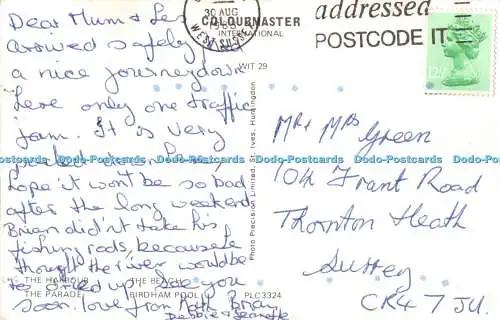 Dear Mum & Les
arrived safely
a nice journey down
here only one traffic
jam. It is very
packed down here,
hope it won't be so bad
after the long weekend
Brian did'nt take his
fishing rods, because he
thought the river would be
dried up see you
soon. love from Kath Brian
Debbie & Jeanette
30 AUG
1983
WEST SUSSEX
COLOURMASTER
INTERNATIONAL
WIT 29
addressed
POSTCODE IT
12½P
Photo Precision Limited, St. Ives, Huntingdon
Mr & Mrs Green
104 Frant Road
Thornton Heath
Surrey
CR4 7JU.
THE HARBOUR THE BEACH
THE PARADE BIRDHAM POOL PLC3324
Dodo-Postcards Dodo-Postcards Dodo-Postcards Dodo-Postcards Dodo-Postcards Dodo-Postcards